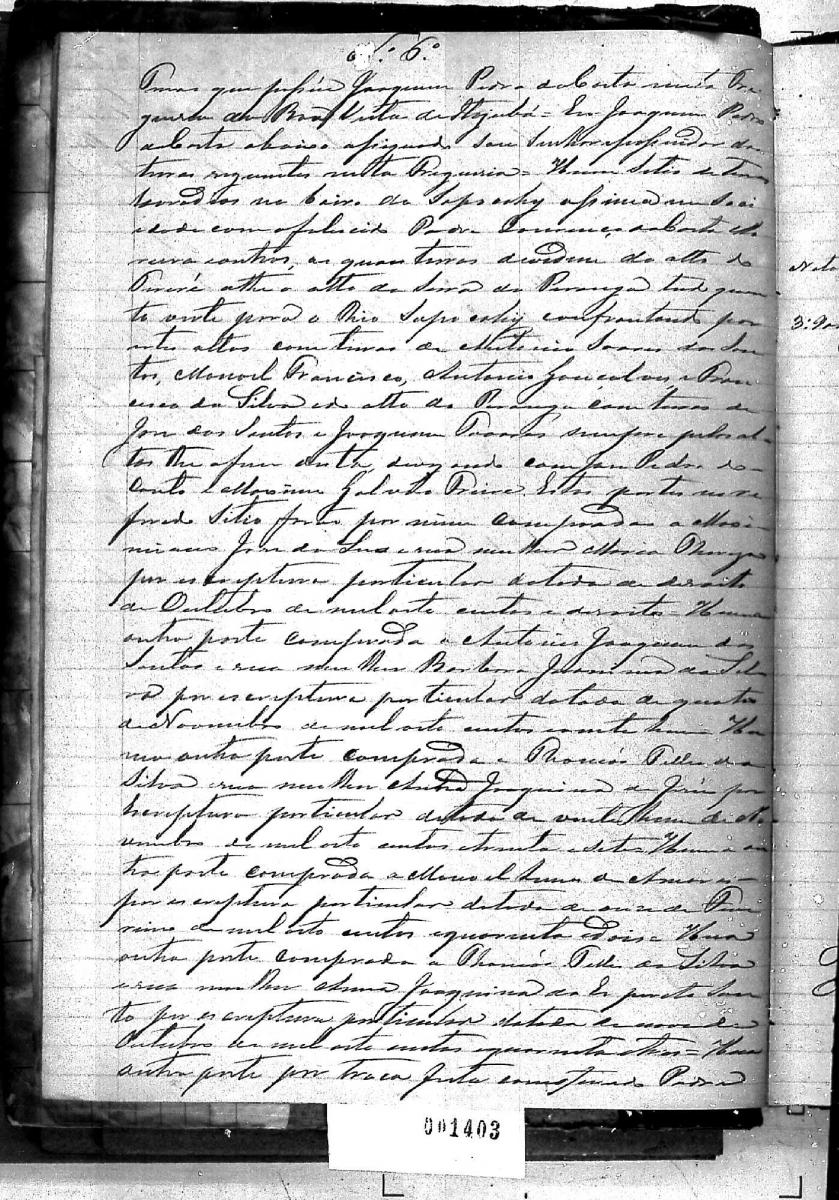 N.º 6.º
Terras que possúe Joaquim Pedro da Costa nesta Fre
guesia da Boa Vista de Itajubá = Eu Joaquim Pedro
da Costa abaixo assignado sou Senhor e possuidor das
terras seguintes nesta Freguesia = Huum Sitio de terras
lavradias no bairro do Sapocahy assima em soci
edade com o Padre Lourenço da Costa Mo
reira e outros, as quaes terras devidem do alto do
athe o alto da Serra do tudo quan
to verte para o Rio Sapocahy confrontando por
estes altos com terras de Antonio Soares dos San
tos, Manoel Francisco, Antonio Gonçalves e Fran
cisco da Silva e do alto do com terras de
Jose dos Santos e Joaquim sempre pelos al
tos the o fim desta, com Jose Pedro da
Costa e Galvão Freire. Estas partes no re
ferido Sitio forão por mim compradas a Maxi
miano Jose da Luz e sua mulher Maria
por escreptura particular datada de desoito
de Outubro de mil oito centos e desoito = Huma
outra parte comprada a Antonio Joaquim dos
Santos e sua mulher Barbara da Sil
va por escreptura particular datada de quatro
de Novembro de mil oito centos e vinte hum = Hu
ma outra parte comprada a Thomás Telles da
Silva e sua mulher Anna Joaquina de por
Escreptura particular datada de vinte hum de No
vembro de mil oito centos e trinta e sete = Huma ou
tra parte comprada a Manoel de
por escreptura particular datada de onze de
de mil oito centos e quarenta e dois = Huma
outra parte comprada a Thomás Telles da Silva
e sua mulher Anna Joaquina do Espirito San
to por escreptura particular datada de nove de
Outubro de mil oito centos quarenta e tres = Huma
outra parte por troca feita com Pedro
001403